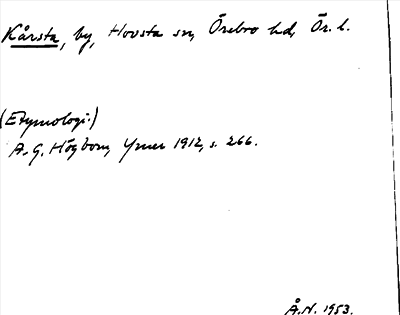 Kårsta, by, Hovsta sn, Örebro hd, Ör. l.
(Etymologi.)
A. G. Högbom, Ymer 1912, s. 266.
Å.N. 1953.